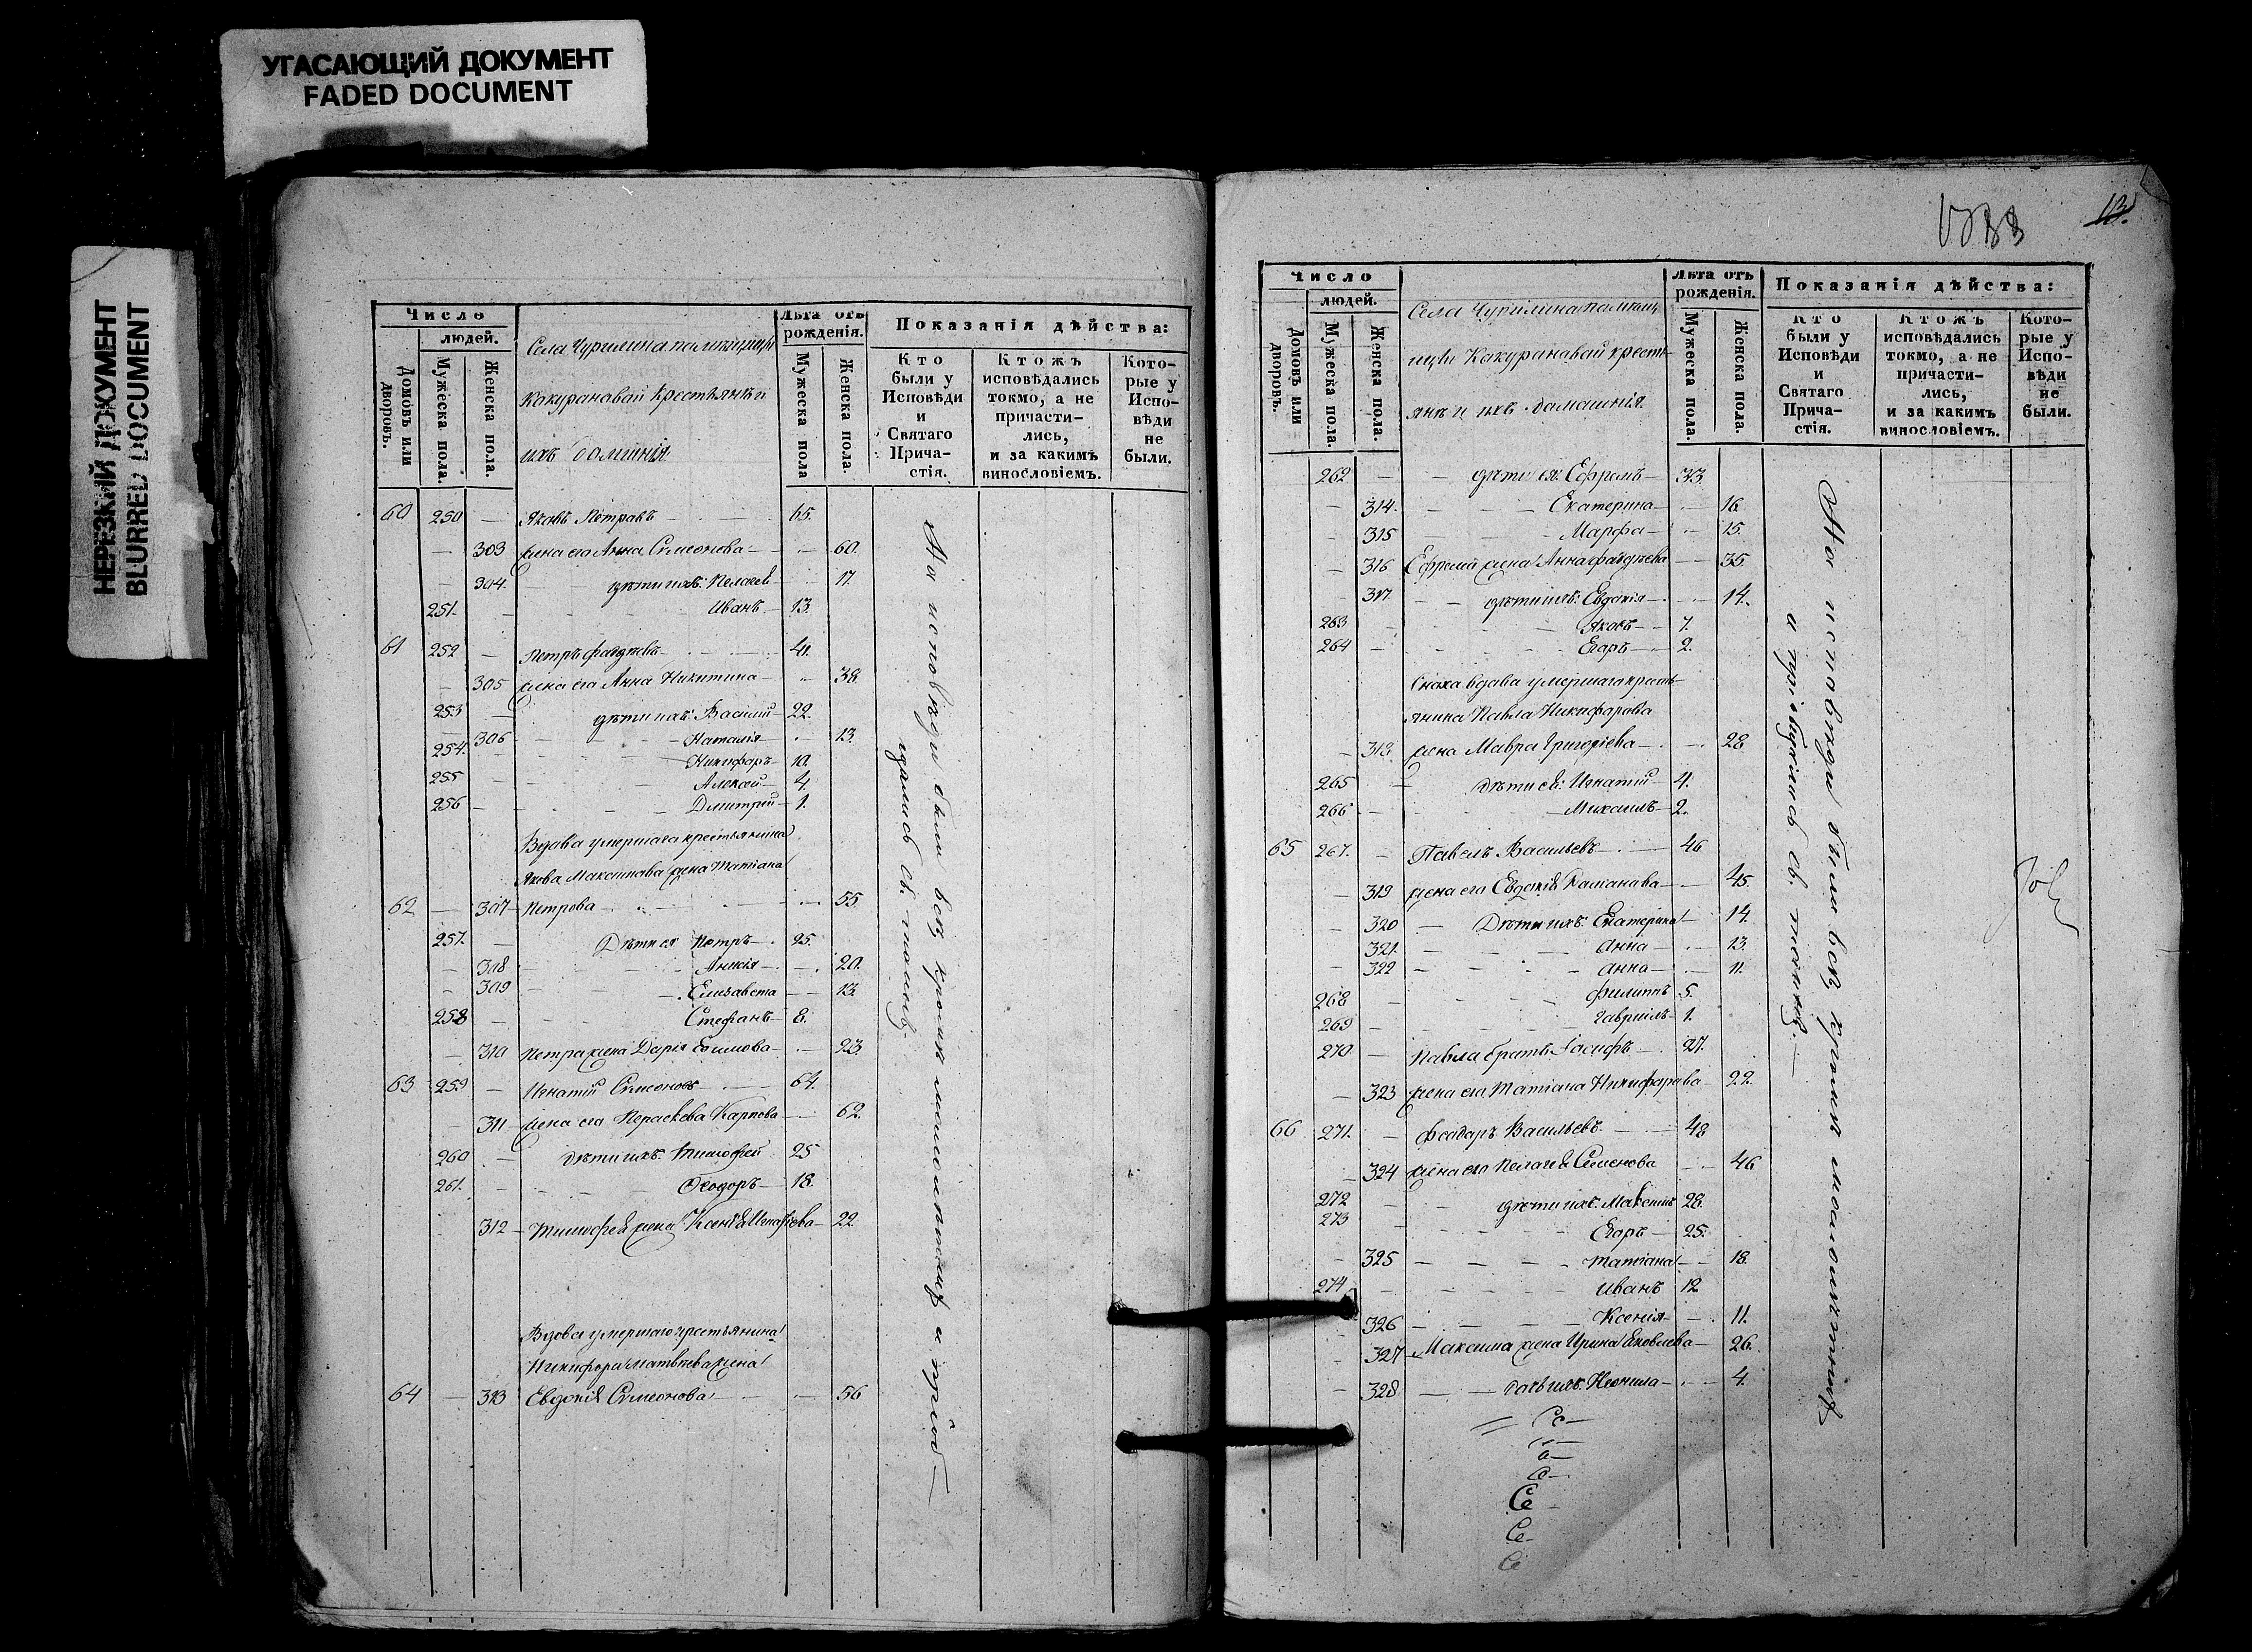 УГАСАЮЩИЙ ДОКУМЕНТ
FADED DOCUMENT
НЕРЕЗКИЙ ДОКУМЕНТ
BLURRED DOCUMENT
Число
людей.
Домовъ или дворовъ.
Мужеска пола.
Женска пола.
Села Чурилина помѣщицы
Какурановай крестьянѣ и
ихъ домшнія
Лѣта отъ рожденія.
Мужеска пола
Женска пола.
Показанія дѣйства:
Кто были у Исповѣди и Святаго Прича-стія.
Ктожъ исповѣдались токмо, а не причасти-лись, и за какимъ винословіемъ.
Кото-рые у Испо-вѣди не были.
60 250 — Яковъ Петравъ 65.
— 303 жена его Анна Симеонова — 60.
— 304. дѣти ихъ: Пелагея — 17.
251. — Иванъ — 13.
61 252 — Петръ Фаддѣевъ 41.
— 305 жена его Анна Никитина — 38
253 — дѣти ихъ: Василий — 22.
306 — Наталія — 13.
254. Никифаръ — 10.
255 — Алексей — 4.
256 — Дмитрий — 1.
Вдава умершаго крестьянина
Якова Максимава жена Татіана
62 — 307 — Петрова — 55
257. — Дѣти ея Петръ — 25.
— 308 Анисія — 20.
— 309 Елизавета — 13.
258 — Стефанъ — 8.
— 310 Петра жена Дарія Ефимова — 23.
63 259 — Игнатий Симеоновъ — 64.
— 311 — жена его Параскева Карпова — 62.
260 — дѣти ихъ: Тимофей 25
261. — Ѳеодоръ — 18.
312 — Тимофея жена Ксенія Игнатіева — 22
Вдова умершаго крестьянина
Никифора Матвѣева жена
64 — 313 Евдокія Симеонова — 56
На исповѣди были всѣ кромѣ
а пріоб—
щались св. таинъ.
13.
Число
людей.
Домовъ или дворовъ.
Мужеска пола.
Женска пола.
Села Чурилина помѣщ
ицы Какуранавай кресть
янѣ и ихъ домашнія.
Лѣта отъ рожденія.
Мужеска пола.
Женска пола.
Показанія дѣйства:
Кто были у Исповѣди и Святаго Прича-стія.
Ктожъ исповѣдались токмо, а не причасти-лись, и за какимъ винословіемъ.
Кото-рые у Испо-вѣди не были.
262 — дѣти ея: Ефремъ — 33.
— 314. Екатерина — 16
— 315 Марфа — 15.
— 316 Ефрема жена Анна Фаддѣева — 35.
317. — дѣти ихъ: Евдокія — 14.
263 — Яковъ — 7.
264 — Егаръ — 2.
Сноха вдава умершаго кресть—
янина Павла Никифарава
— 318. жена Мавра Григоріева — 28
265 — дѣти ея: Игнатий — 4.
266 — Михаилъ — 2.
65 267. — Павелъ Васильевъ — 46
— 319 жена его Евдокія Романава — 45.
— 320 — Дѣти ихъ: Екатерина — 14.
— 321. Анна — 13.
— 322 Анна — 11.
268 — Филиппъ 5.
269 — Гавриилъ — 1.
270 — Павла братъ Іосифъ — 27.
— 323 жена его Татіана Никифарава — 22.
66 271. — Феадаръ Васильевъ — 48
— 324 жена его Пелагея Семенова — 46
272 — дѣти ихъ: Максимъ 28.
273 — Егаръ — 25.
— 325 Татіана — 18.
274 — Иванъ 12
— 326 Ксенія — 11.
— 327 Максима жена Ирина Яковлева — 26.
— 328 дочь ихъ: Неонила — 4.
На исповѣди были всѣ кромѣ
а пріобщались св. таинъ. —